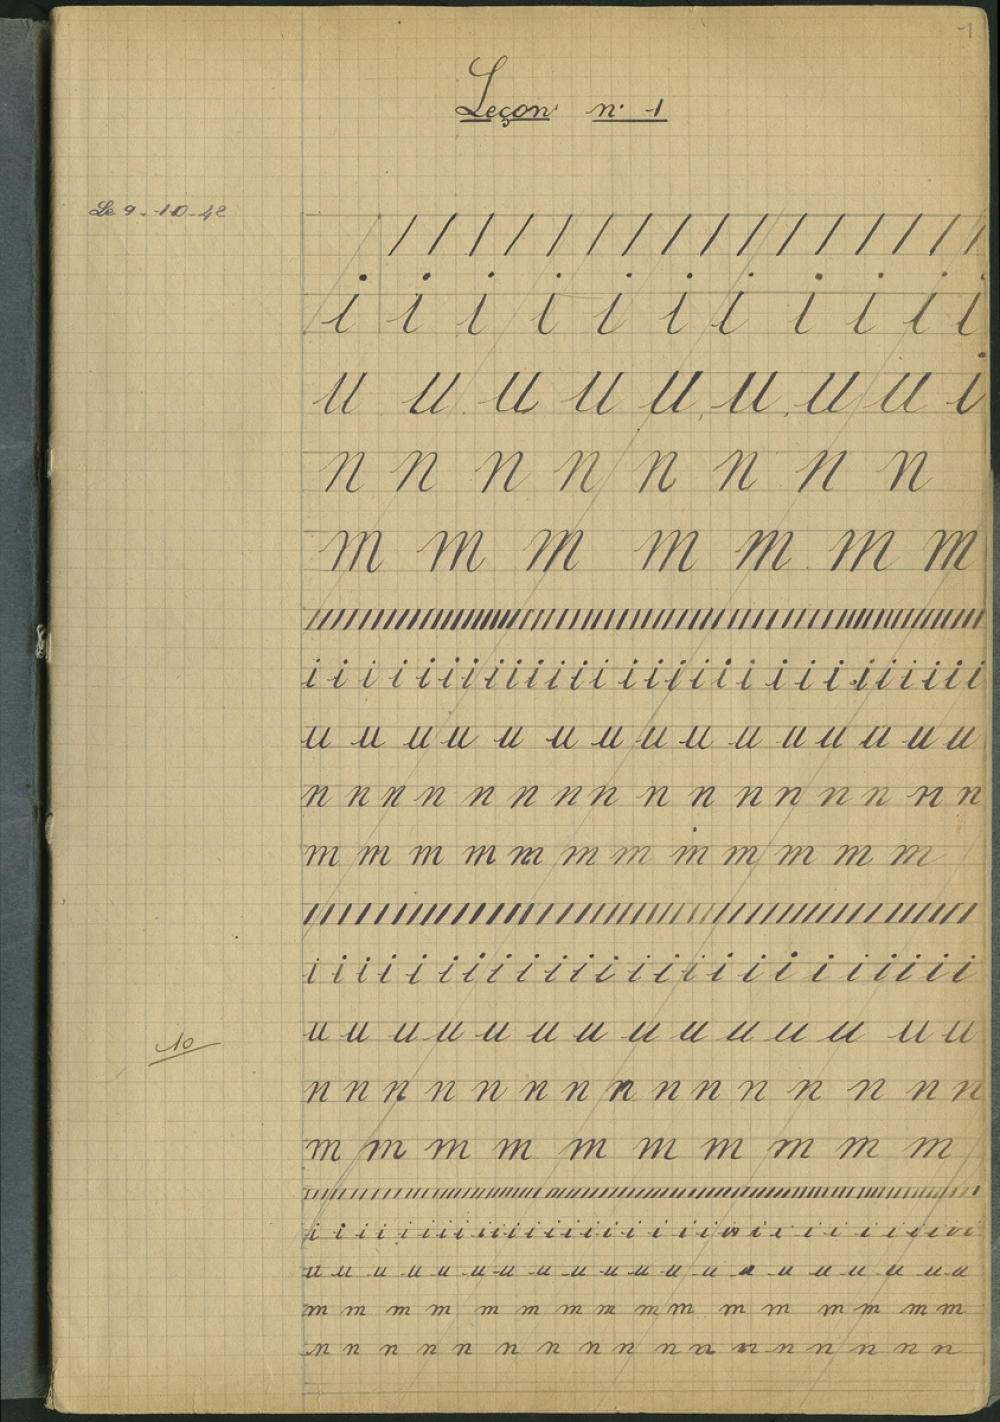 1
Leçon n° 1
Le 9-10-42
/ / / / / / / / / / / / / / / /
i i i i i i i i i i i
u u u u u u u u i
n n n n n n n n
m m m m m m m
i i i i i i i i i i i i i i i i i i i i i i i i i i i i
u u u u u u u u u u u u u u u
n n n n n n n n n n n n n n n n
m m m m m m m m m m m m
i i i i i i i i i i i i i i i i i i i i i i i i
10
u u u u u u u u u u u u u u u
n n n n n n n n n n n n n n n n
m m m m m m m m m m
i i i i i i i i i i i i i i i i i i i i i i i i i i i
u u u u u u u u u u u u u u u u u u
m m m m m m m m m m m m m m m m
n n n n n n n n n n n n n n n n n